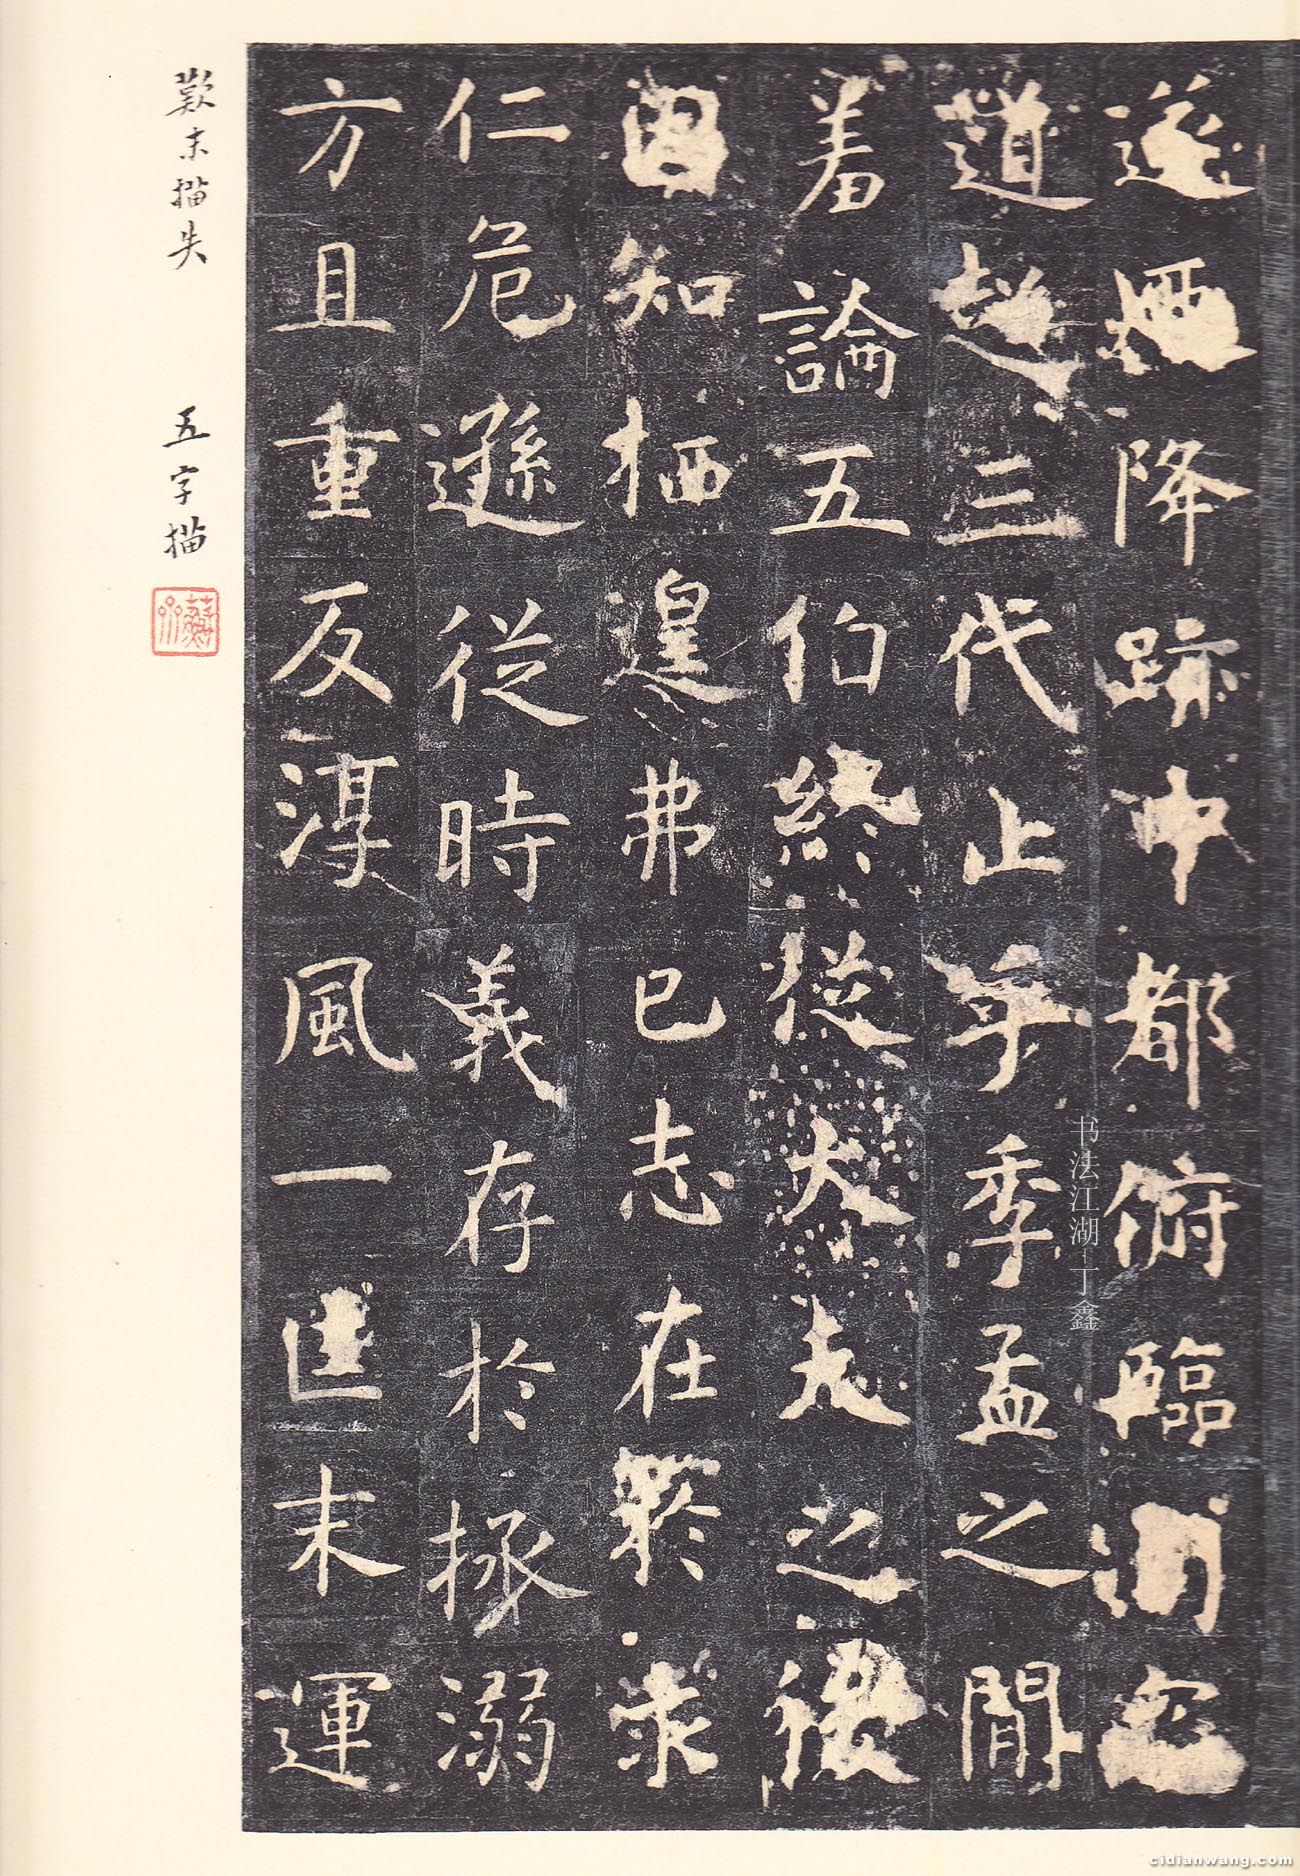 遂迺降跡中都俯臨
道超三代止乎季孟之閒
羞論五伯終從大夫之後
固知栖遑弗已志在求
仁危遜從時義存於拯溺
方且重反淳風一匡末運
歎末描失 五字描
书法江湖—丁鑫
cidianwang.com